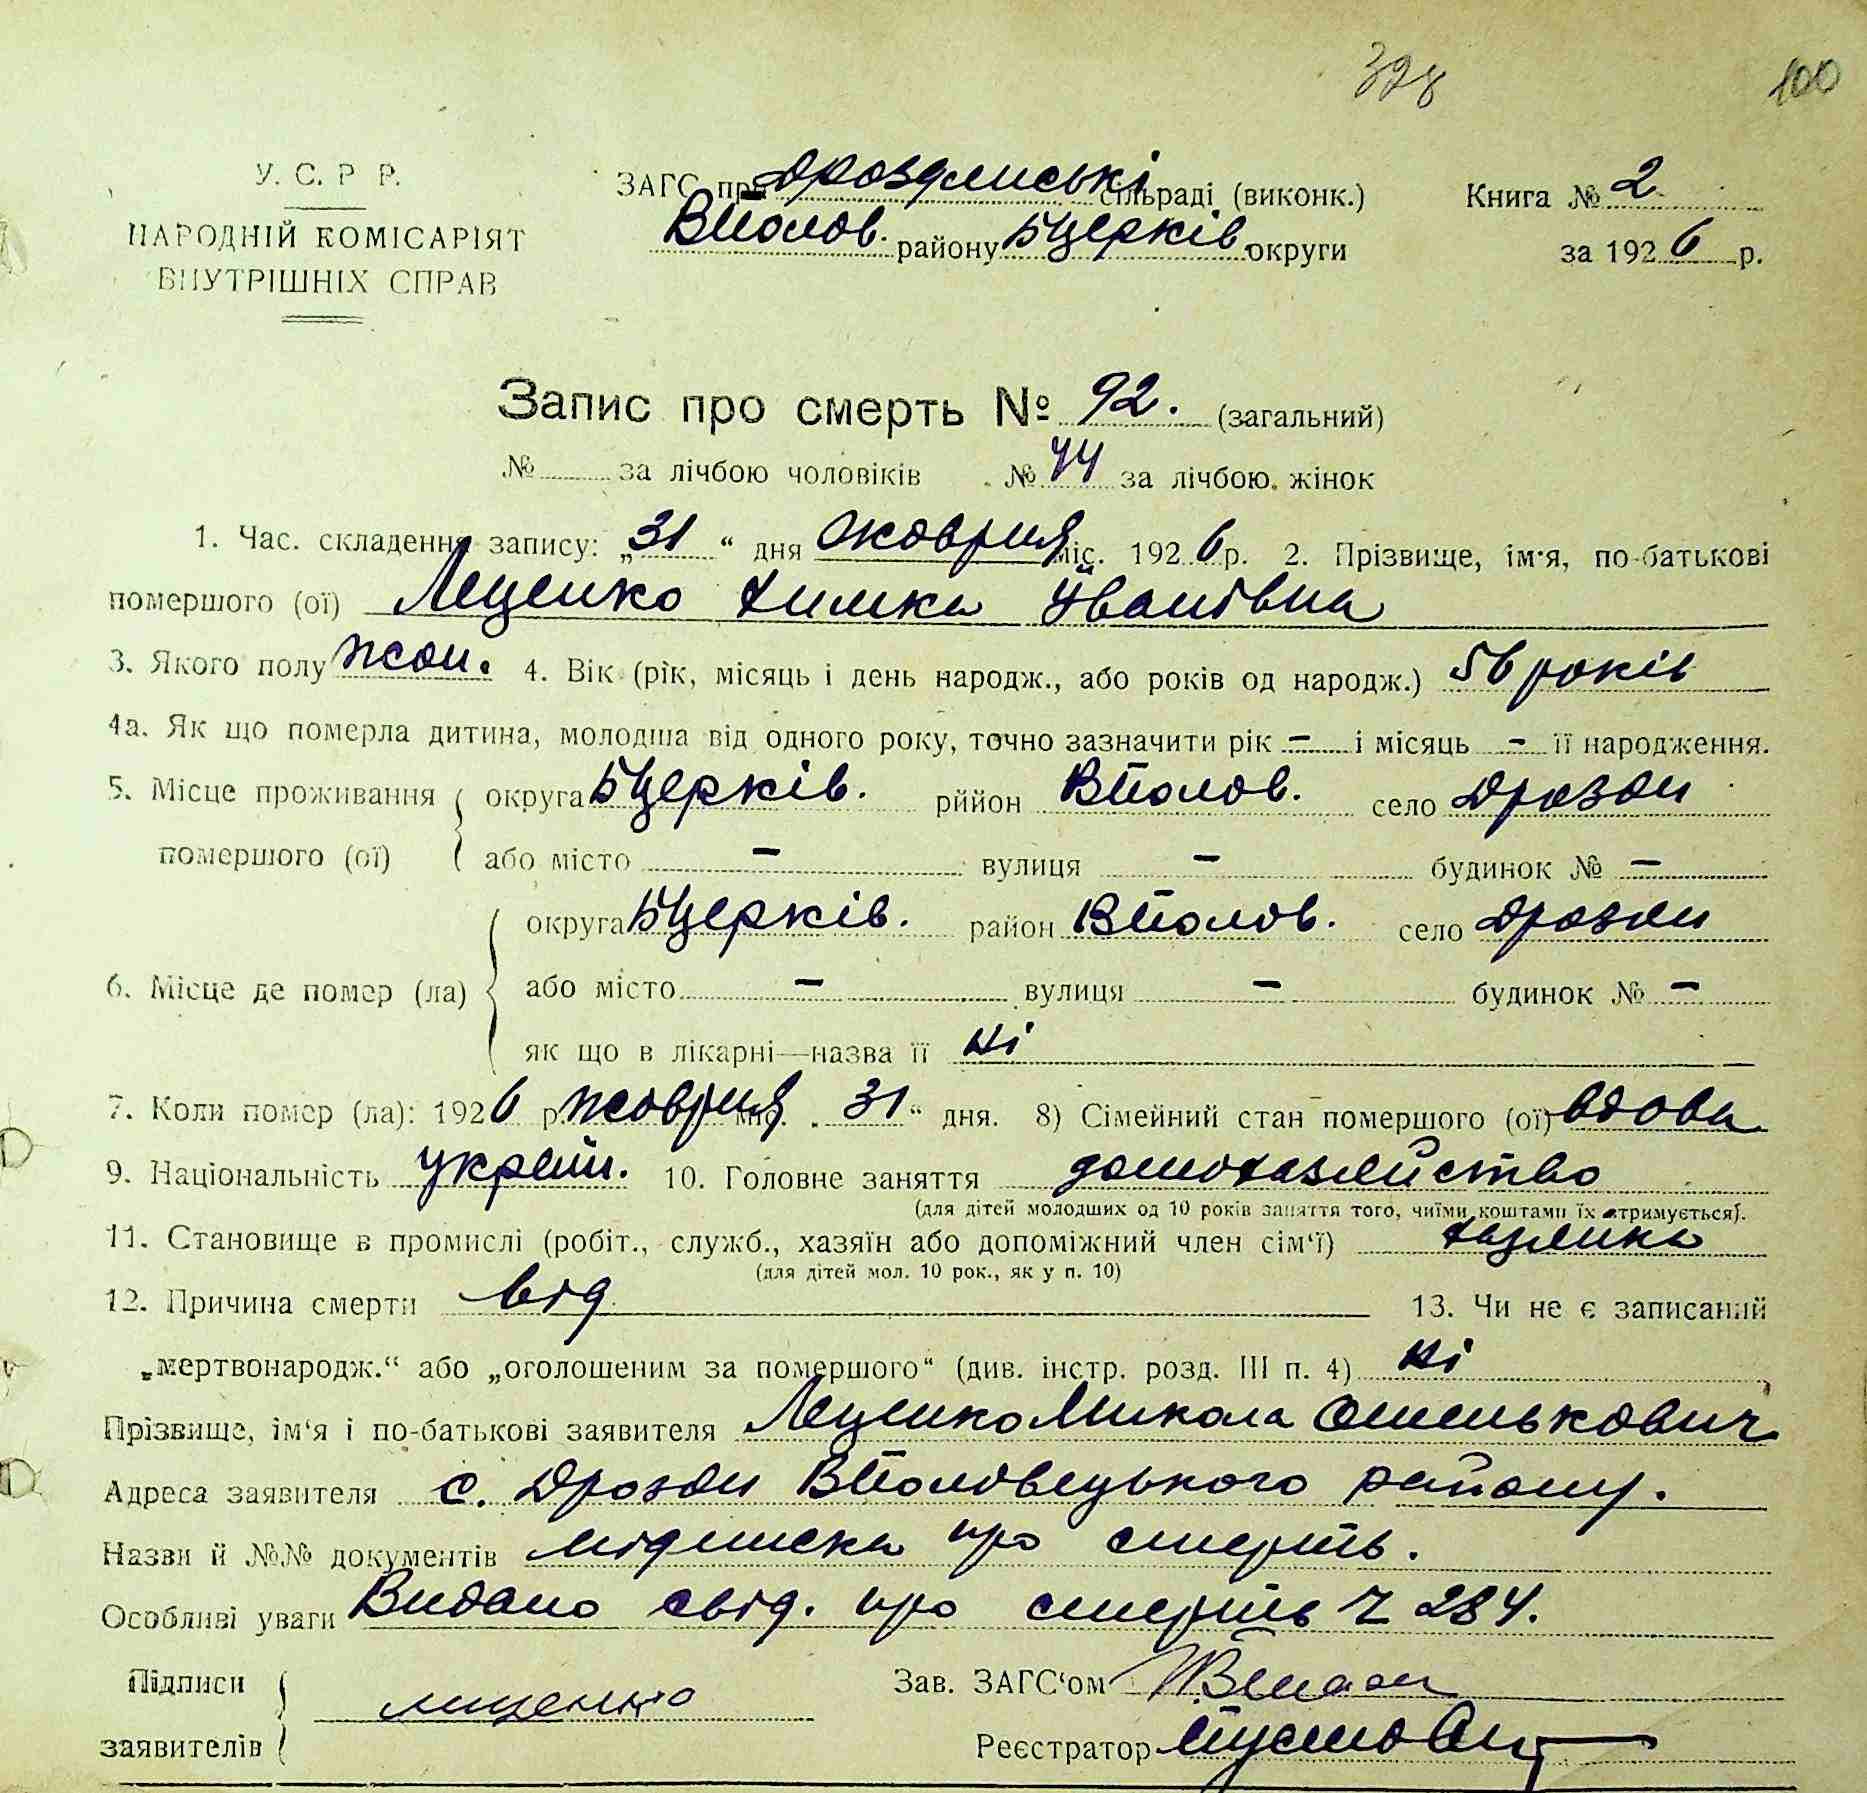 398 100
У. С. Р Р. ЗАГС при Дроздянські сільраді (виконк.) Книга № 2
НАРОДНІЙ КОМІСАРІЯТ ВПолов. району БЦерків. округи за 1926 р.
ВНУТРІШНІХ СПРАВ
Запис про смерть № 92. (загальний)
№ за лічбою чоловіків № 44 за лічбою жінок
1. Час. складення запису: „31“ дня жовтня міс. 1926 р. 2. Прізвище, ім'я, по-батькові
помершого (ої) Лещенко Химка Іванівна
3. Якого полу жон. 4. Вік (рік, місяць і день народж., або років од народж.) 56 років
4а. Як що померла дитина, молодша від одного року, точно зазначити рік – і місяць – її народження.
5. Місце проживання округа БЦерків. рййон ВПолов. село Дрозди
помершого (ої) або місто – вулиця – будинок № –
округа БЦерків. район ВПолов. село Дрозди
6. Місце де помер (ла) або місто – вулиця – будинок № –
як що в лікарні—назва її ні
7. Коли помер (ла): 1926 р. жовтня міс. „31“ дня. 8) Сімейний стан помершого (ої) вдова
9. Національність україн. 10. Головне заняття домохазяйство
(для дітей молодших од 10 років заняття того, чиїми коштами їх утримується).
11. Становище в промислі (робіт., служб., хазяїн або допоміжний член сім'ї) хазяйка
(для дітей мол. 10 рок., як у п. 10)
12. Причина смерти від 13. Чи не є записаний
„мертвонародж.“ або „оголошеним за помершого“ (див. інстр. розд. III п. 4) ні
Прізвище, ім'я і по-батькові заявителя Лещенко Микола
Адреса заявителя с. Дрозди ВПоловецького району.
Назви й №№ документів підписка про смерть.
Особливі уваги Видано свід. про смерть Ч 284.
Підписи Зав. ЗАГС'ом
заявителів лищенко Реєстратор